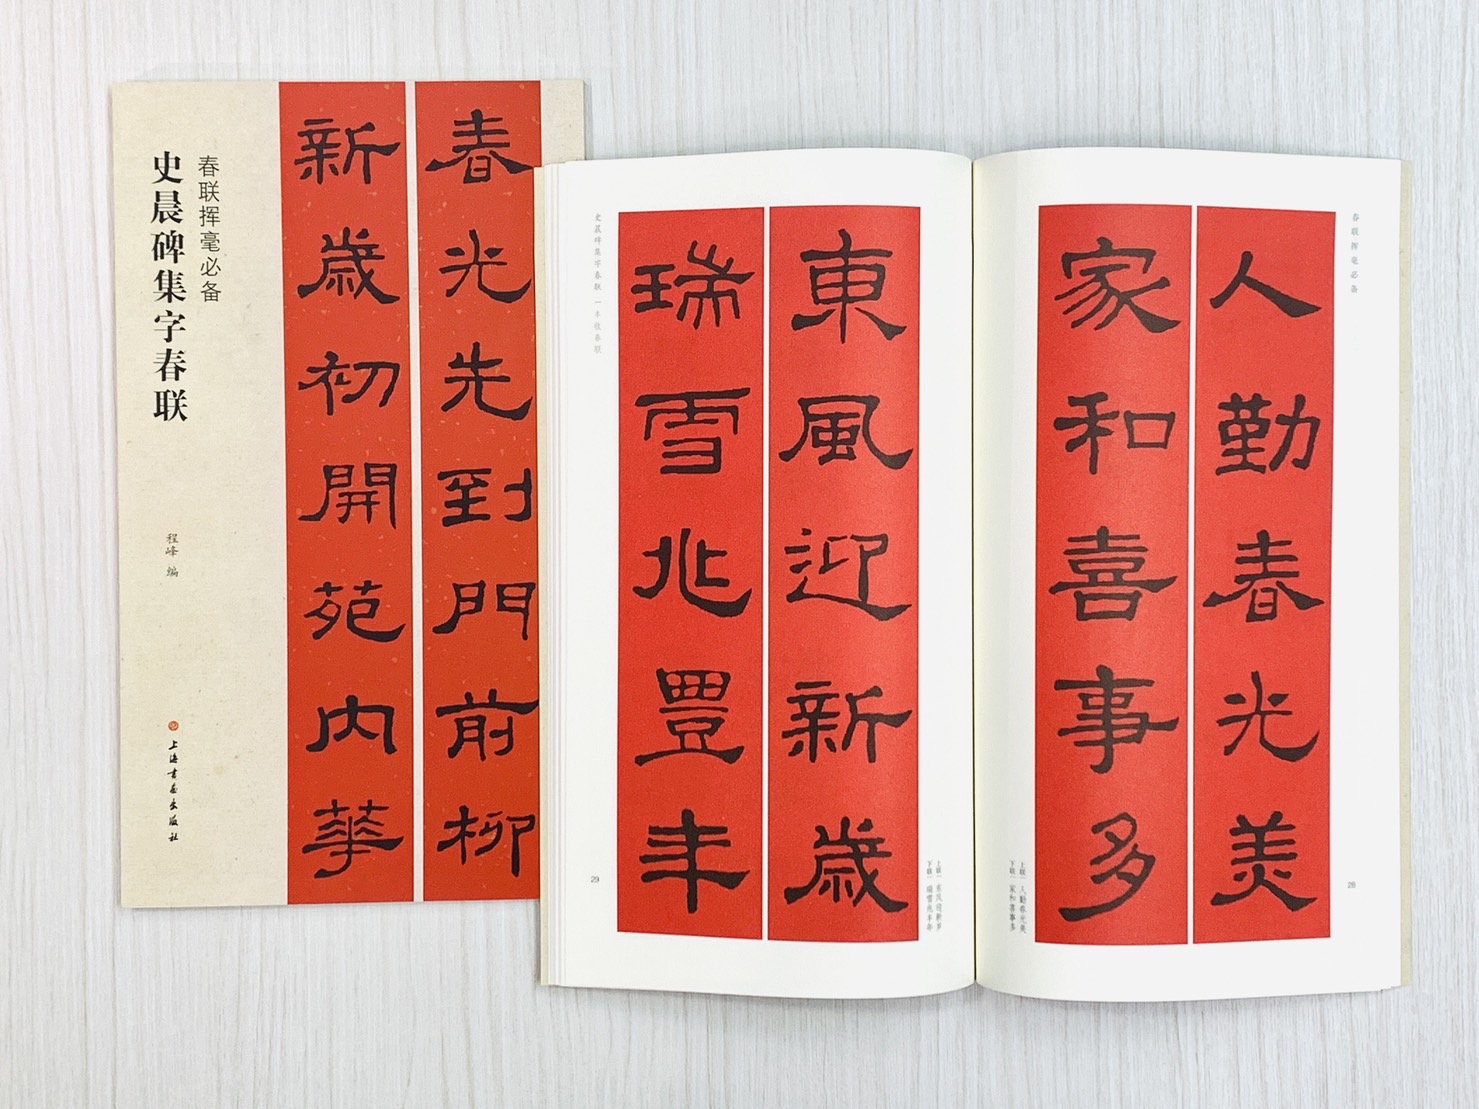 春光先到門前柳
新歲初開苑内華
春联挥毫必备
史晨碑集字春联
程峰 编
上海书画出版社
春联挥毫必备
28
人勤春光美
家和喜事多
上联 | 人勤春光美
下联 | 家和喜事多
上联 | 东风迎新岁
下联 | 瑞雪兆丰年
東風迎新歲
瑞雪兆豊年
史晨碑集字春联 | 丰收春联
29